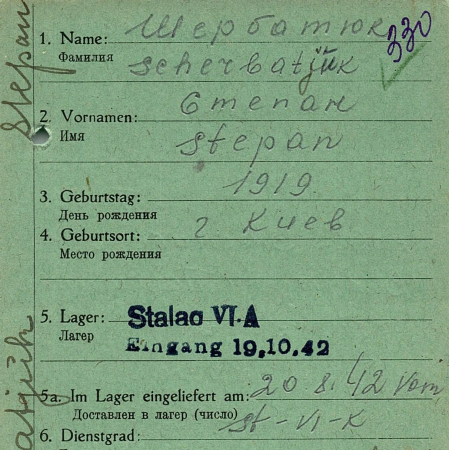 1. Name: Шербатюк
330
Фамилия Scherbatjŭk
2. Vornamen: Степан
Имя Stepan
3. Geburtstag: 1919.
День рождения
4. Geburtsort: г Киев
Место рождения
5. Lager: Stalag VI.A
Лагер Eingang 19.10.42
5a. Im Lager eingeliefert am: 20 8. 42 vom
Доставлен в лагер (число) St-VI-K
6. Dienstgrad:
Stepan
atjŭk